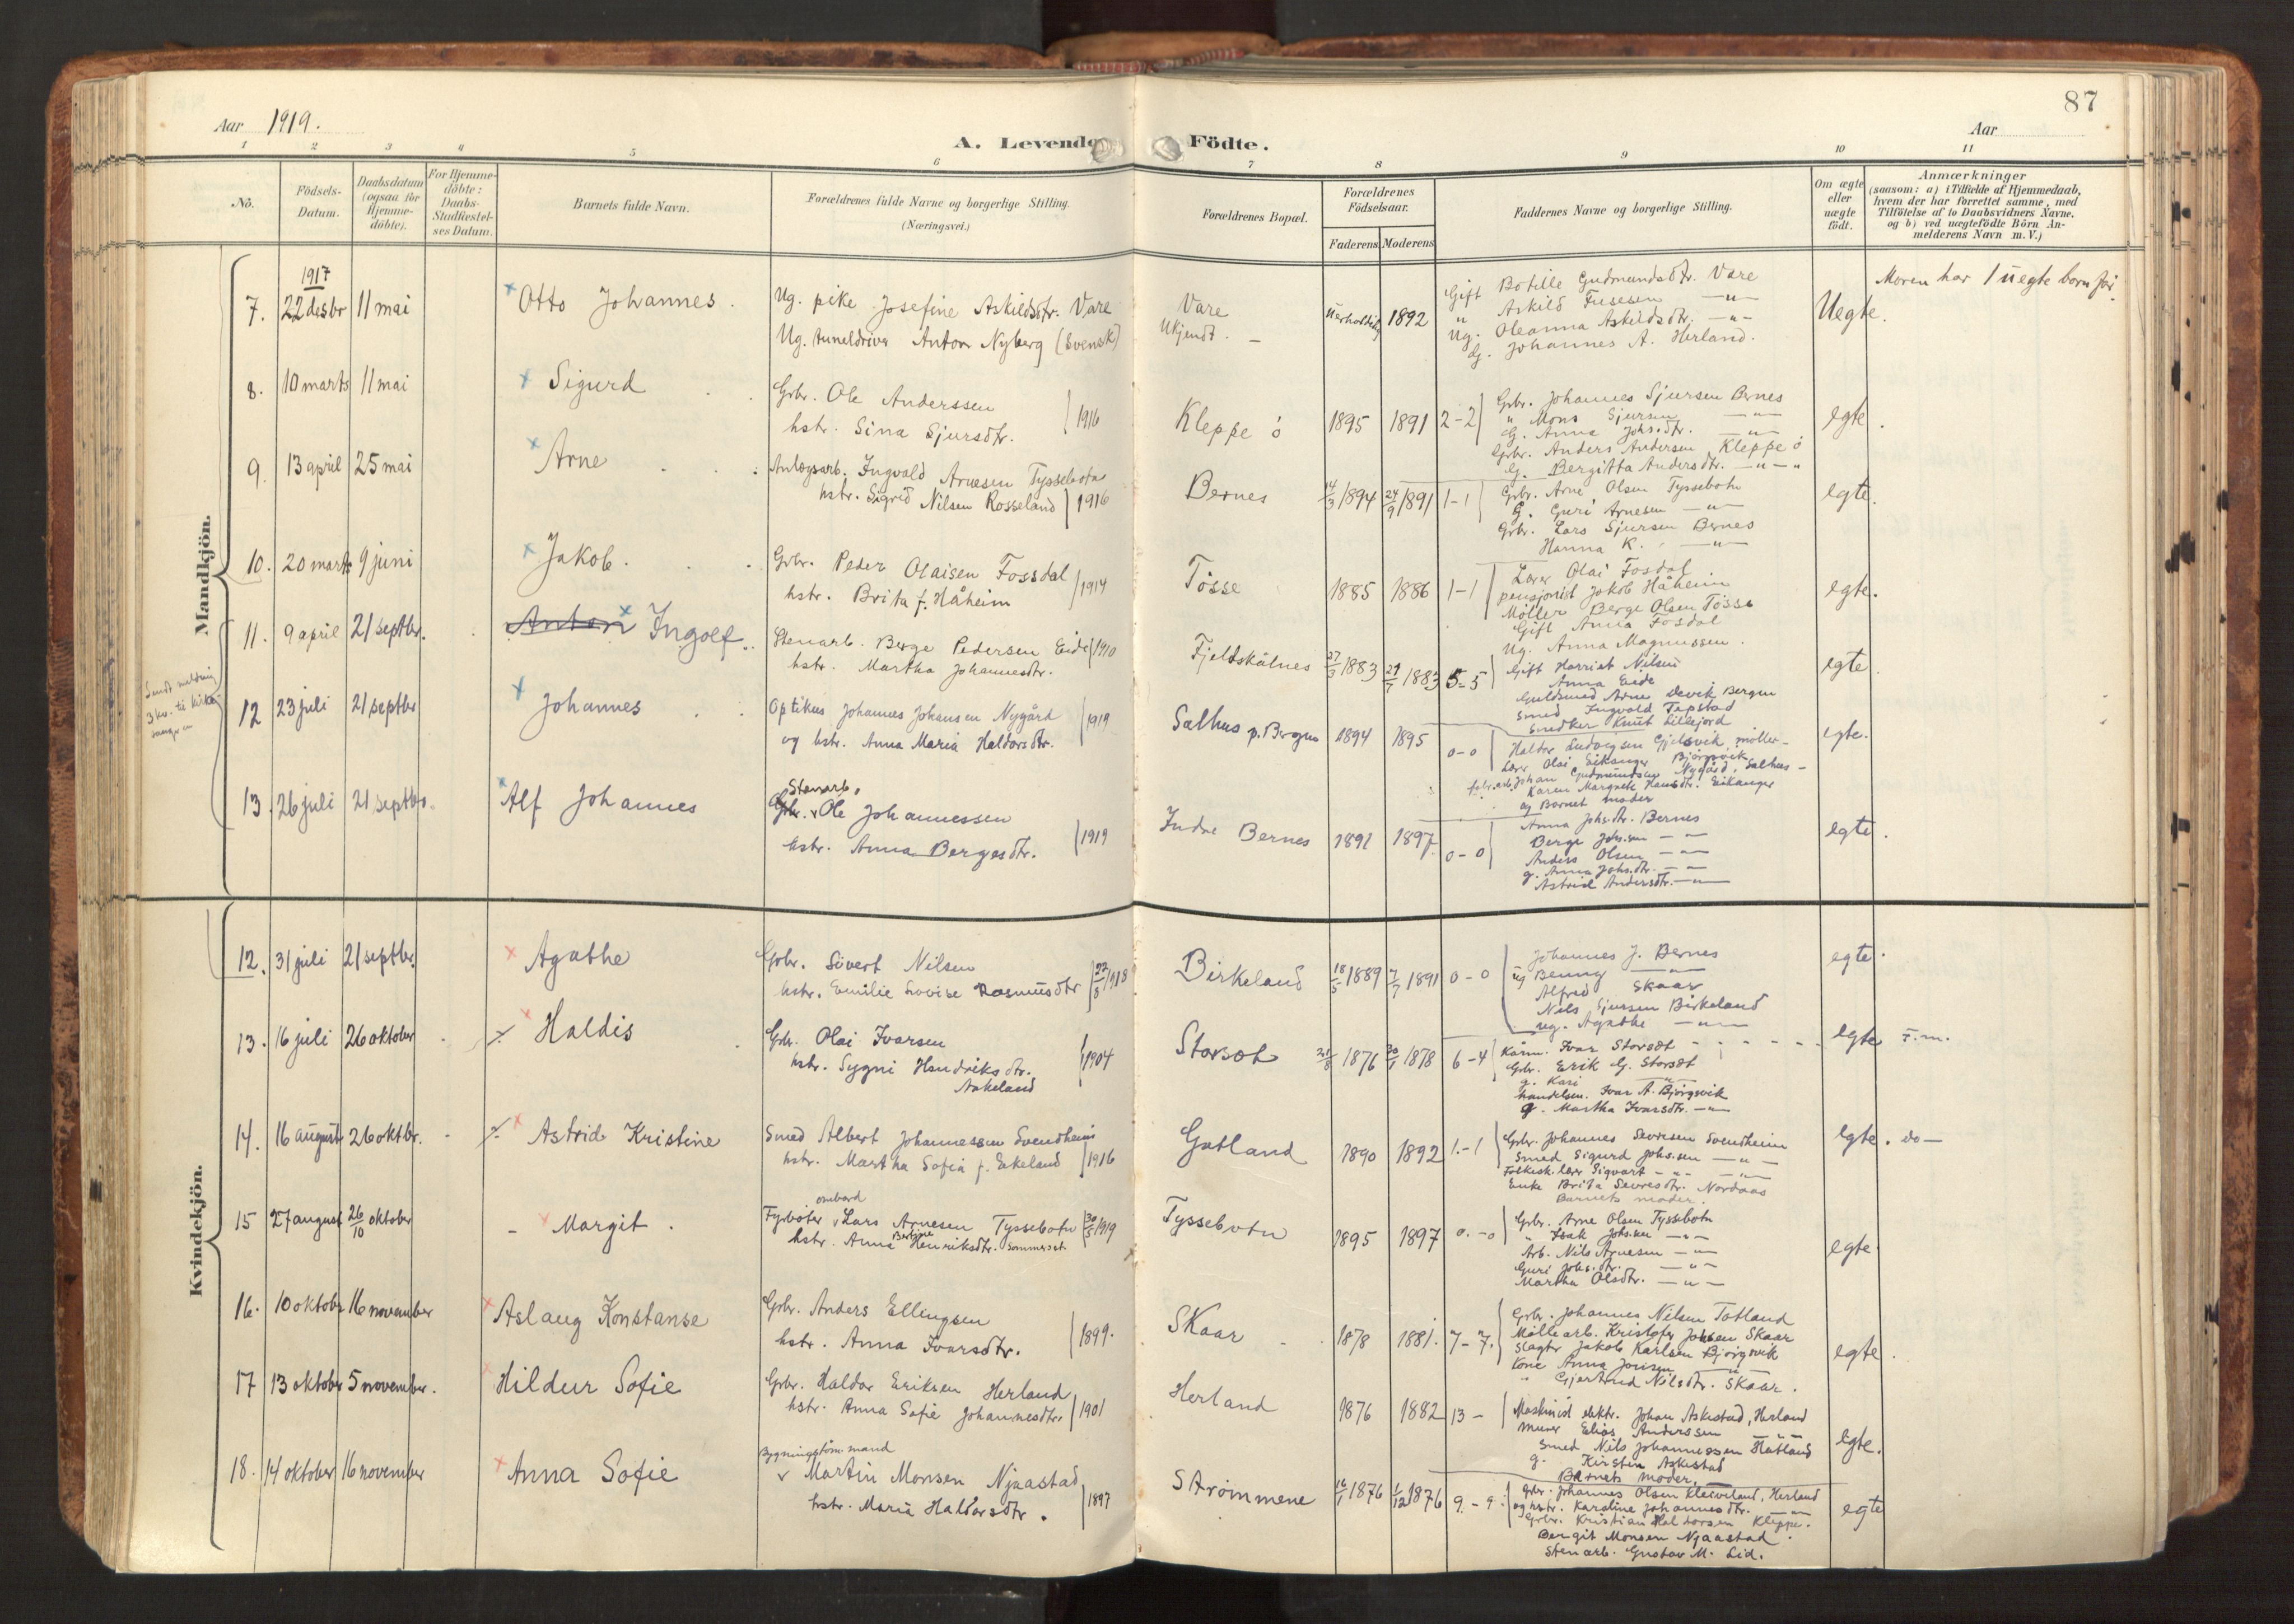 87
Aar 1919.
A. Levende Födte.
Aar
1 2 3 4 5 6 7 8 9 10 11
No.
Födsels-Datum.
Daabsdatum (ogsaa for Hjemme-döbte).
For Hjemme-döbte: Daabs-Stadfæstel-ses Datum.
Barnets fulde Navn.
Forældrenes fulde Navne og borgerlige Stilling.
(Næringsvei.)
Forældrenes Bopæl.
Forældrenes Födselsaar.
Faderens Moderens
Faddernes Navne og borgerlige Stilling.
Om ægte eller uægte födt.
Anmærkninger
(saasom: a) i Tilfælde af Hjemmedaab,
hvem der har forrettet samme, med
Tilföielse af to Daabsvidners Navne.
og b) ved uægtefödte Börn An-
melderens Navn m. V.)
Mandkjön.
1917
7. 22 desbr 11 mai Otto Johannes.
Ug. pike Josefine Askildsdtr. Vare
Ug. tuneldriver Anton Nyberg (svensk)
Vare
Ukjendt. -
1892
Gift Botille Gudmundsdtr. Vare
" Askild Fusesen —"—
Ug. Oleanna Askildsdtr. —"—
G. Johannes A. Herland.
Uegte.
Moren har 1 uegte barn før.
8. 10 marts 11 mai Sigurd
Grbr. Ole Anderssen
hstr. Sina Sjursdtr. 1916
Kleppe ö 1895 1891 2-2
Grbr. Johannes Sjursen Bernes
" Mons Sjursen —"—
G. Anna Johsdtr. —"—
Grbr. Anders Andersen Kleppe ö
G. Bergitta Andersdtr. —"—"
egte.
9. 13 april 25 mai Arne
Anlægsarb. Ingvald Arnesen Tyssebotn
hstr. Sigrid Nilsen Rosseland 1916
Bernes 14/3 1894 24/9 1891 1-1
Grbr. Arne Olsen Tyssebotn
G. Guri Arnesen —"—
Grbr. Lars Sjursen Bernes
Hanna K. —"—
egte.
10. 20 marts 9 juni Jakob.
Grbr. Peder Olaisen Fossdal
hstr. Brita f. Håheim 1914
Tösse 1885 1886 1-1
Lærer Olai Fosdal
pensjonist Jakob Håheim
Möller Berge Olsen Tösse
Gift Anna Fosdal
Ug. Anna Magnussen.
egte.
11. 9 april 21 septbr. Anton Ingolf.
Stenarb. Berge Pedersen Eide 1910
hstr. Martha Johannesdtr.
Fjeldskålnes 27/3 1883 29/7 1883 5-5
Gift Harriet Nilsen
Anna Eide
Guldsmed Arne Devik Bergen
Smed Ingvald Tepstad
Snedker Knut Lillejord
egte.
Sendt melding
12 23 juli 21 septbr Johannes
Optikus Johannes Johansen Nygård
og hstr. Anna Maria Haldorsdtr. 1919
Salhus p. Bergen 1894 1895 0-0
Haldor Ludvigsen Gjelsvik möller-
Lærer Olai Eikanger Bjørgsvik
Johan Gudmundsen Nygård, Salhus -
Karen Margrete Eikanger
og Barnet moder
egte.
13. 26 juli 21 septbr. Alf Johannes
Stenarb.
Grbr. v Ole Johannessen
hstr. Anna Bergesdtr. 1919
Indre Bernes 1891 1897 0-0
Anna Johsdtr. Bernes
Berge Johsen —"—
Anders Olsen —"—
g. Anna Johsdtr. —"—
Astrid Andersdtr. —"—
egte.
Kvindekjön.
12. 31 juli 21 septbr. Agathe
Grbr. Sivert Nilsen
hstr. Emilie Lovise Rasmusdtr 22/8 1918
Birkeland 18/5 1889 7/7 1891 0-0
Johannes J. Bernes
ug Benny —"—
Alfred Skaar
Nils Sjursen Birkeland
ug. Agathe —"—
egte.
13. 16 juli 26 oktober Haldis
Grb. Olai Ivarsen
hstr. Sygni Hendriksdtr. 1904
Askeland
Storset 1876 1878 6-4
Kårm. Ivar Storset
Grbr. Erik G. Storset
g. Kari —"—
handelsm. Ivar A. Bjørgsvik
g. Martha Ivarsdtr. —"—
egte F.m.
14. 16 august 26 oktbr. Astrid Kristine
Smed Albert Johannessen Svendheim
hstr. Martha Sofia f. Eikeland 1916
Gotland 1890 1892 1-1
Grbr. Johannes Sevresen Svendheim
Smed Sigurd Johsen —"—
Folkesk.lærer Sigvart —"—
Enke Brita Sevresdtr. Nordaas
Barnets moder.
egte. do —
15 27 august 26/10 oktober Margit.
ombord
Fyrböter v Lars Arnesen Tyssebotn 30/5 1919
hstr. Anna Bertine Henriksdtr. Sommerset
Tyssebotn 1895 1897 0-0
Grbr. Arne Olsen Tyssebotn
" Isak Johsen —"—
Arb. Nils Arnesen —"—
Guri Johsdtr. —"—
Martha Olsdtr. —"—
egte
16. 10 oktobr 16 november Aslaug Konstanse
Grbr. Anders Ellingsen
hstr. Anna Ivarsdtr. 1899.
Skaar 1878 1881. 7-7.
Grbr. Johannes Nilsen Totland
Möllearb. Kristofer Johsen Skaar
Slagter Jakob Karlsen Bjørgsvik
Kone Anna Jonsen —"—
" Gjertrud Nilsdtr. Skaar.
egte.
17 13 oktober 5 november. Hildur Sofie
Grbr. Haldor Eriksen Herland
hstr. Anna Sofie Johannesdtr. 1901
Herland 1876 1882 13 -
Maskinist elektr. Johan Askestad, Herland
Murer Elias Anderssen —"—
Smed Nils Johannessen Hatland
g. Kirsten Askestad
Barnets moder.
egte.
18. 14 oktober 16 november Anna Sofie
Bygningstömmand
v Martin Monsen Njaastad
hstr. Maria Haldorsdtr. 1897
Strömmene 16/1 1876 1/12 1876 9-9
Grbr. Johannes Olsen Kleiveland, Herland
og hstr. Karoline Johannesdtr. —"—
Grbr. Kristian Haldorsen Kleppe.
Bergit Monsen Njaastad
Stenarb. Gustav M. Lid.
egte